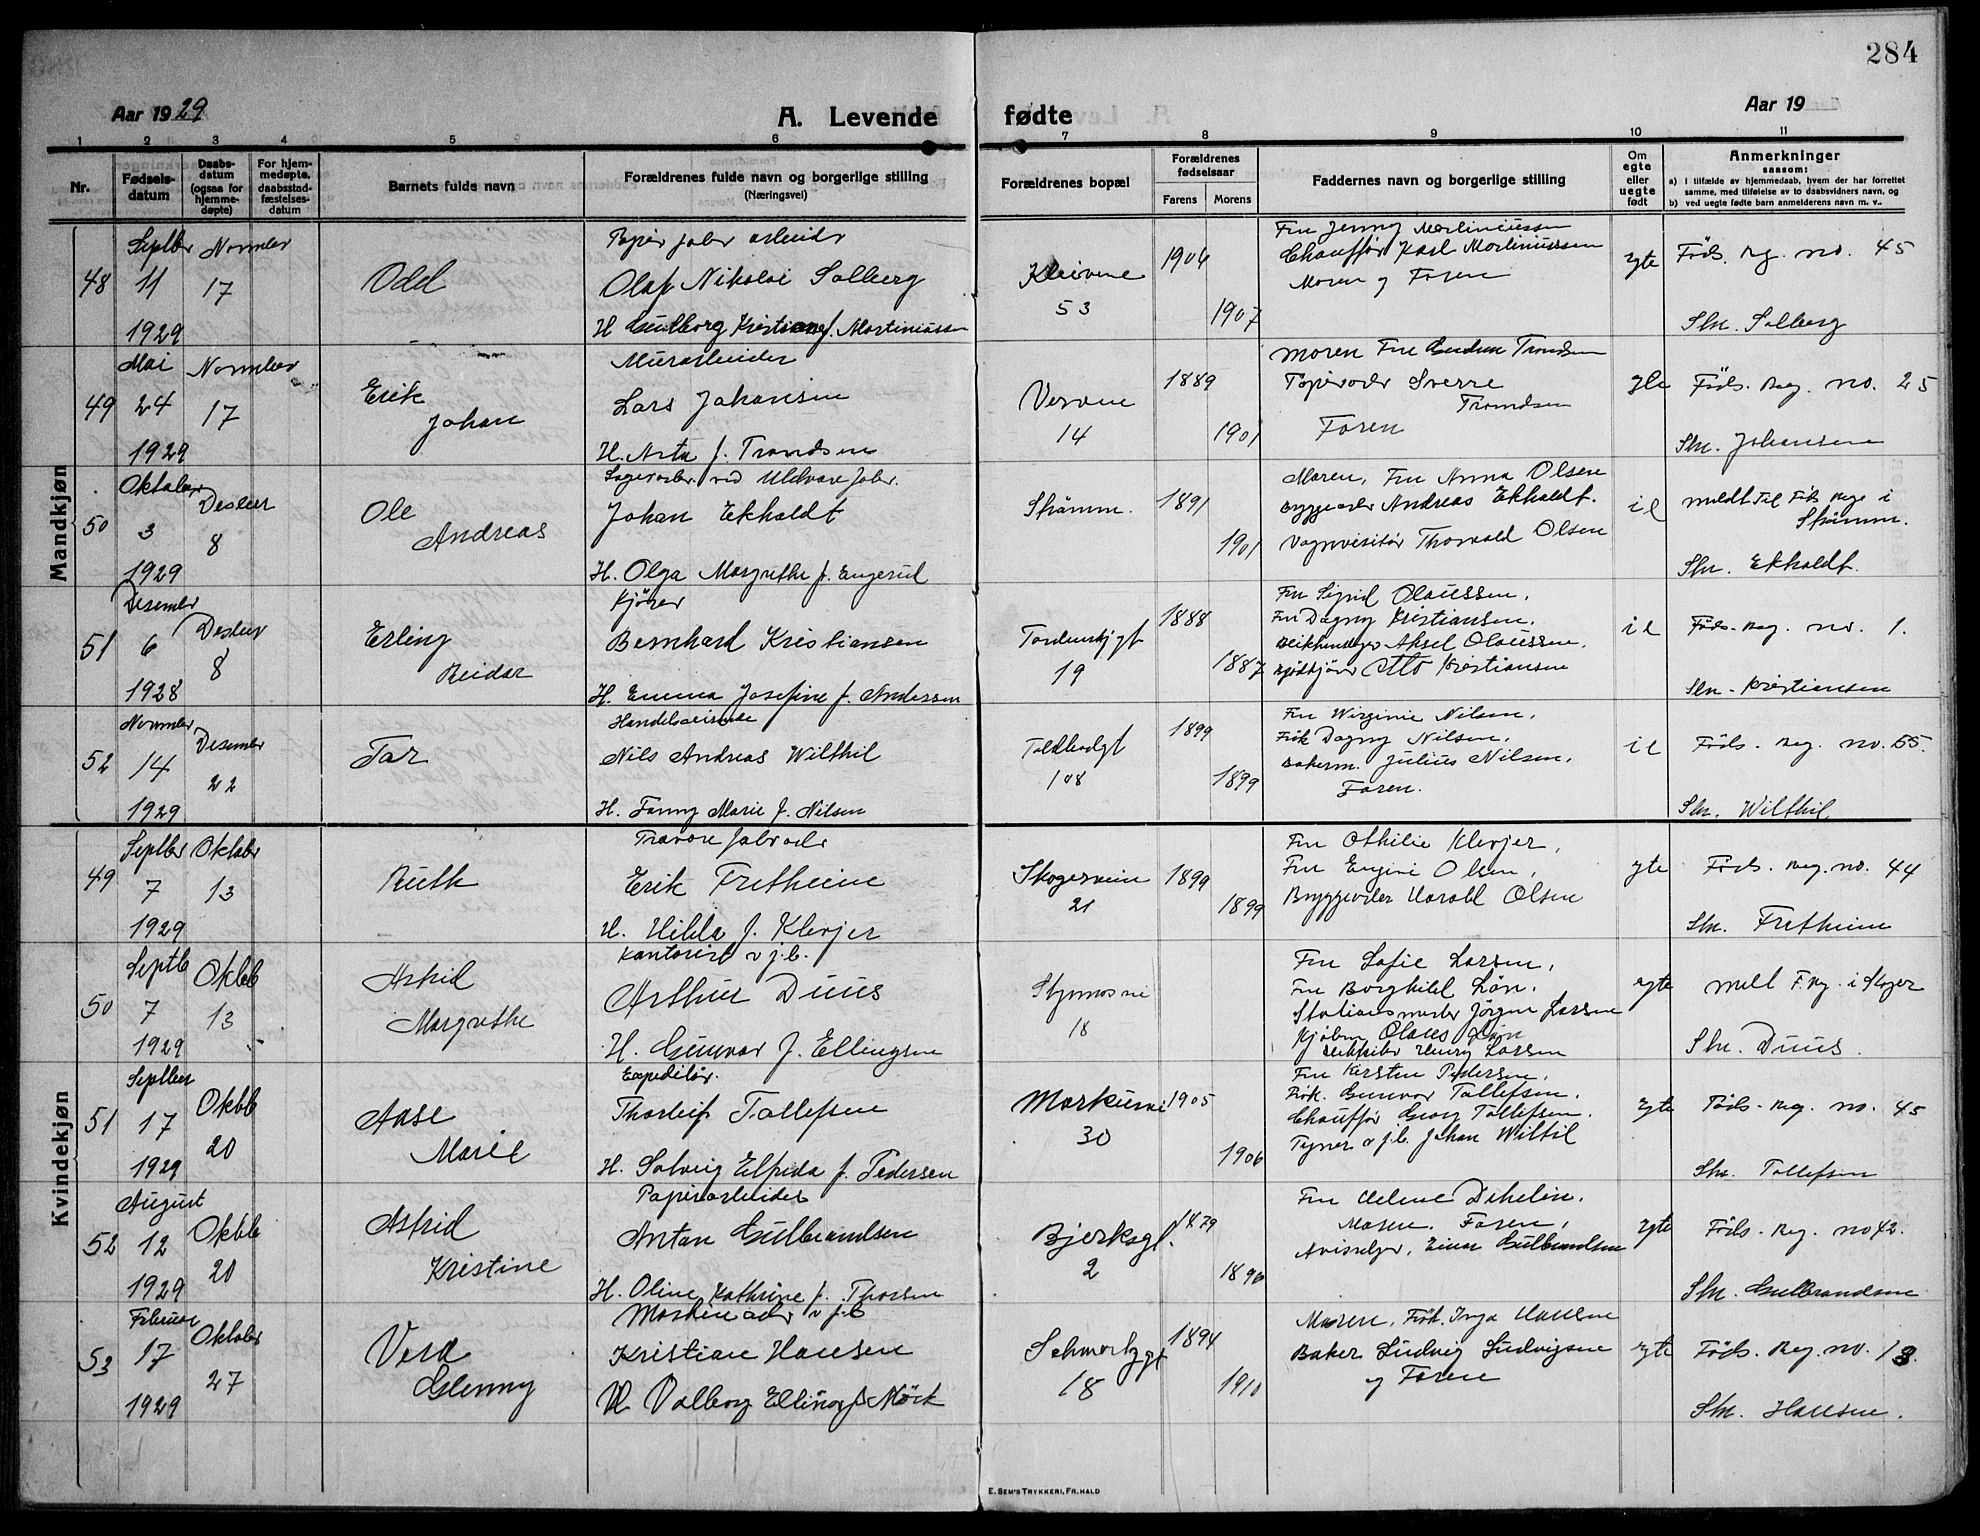 284
Aar 1929
A. Levende fødte
Aar 19
1 2 3 4 5 6 7 8 9 10 11
Nr.
Fødsels-
datum
Daabs-
datum
(ogsaa for
hjemme-
døpte)
For hjem-
medøpte,
daabsstad-
fæstelses-
datum
Barnets fulde navn
Forældrenes fulde navn og borgerlige stilling
(Næringsvei)
Forældrenes bopæl
Forældrenes
fødselsaar
Farens Morens
Faddernes navn og borgerlige stilling
Om
egte
eller
uegte
født
Anmerkninger
saasom:
a) i tilfælde av hjemmedaab, hvem der har forrettet
samme, med tilføielse av to daabsvidners navn, og
b) ved uegte fødte barn anmelderens navn m. v..
Mandkjøn
48
Septbr
11
1929
17
Odd
Olaf Nikolai Solberg
53
1904
1907
Fru Jenny Martiniussen
Chauffør Karl Martiniussen
Moren og Faren
egte
Føds. reg. no. 45
Stn. Solberg
49
Mai
24
1929
17
Erik
Johan
Murarbeider
Lars Johansen
H. Asta f. Trondsen
14
1889
1901
Moren Fru Gudrun Trondsen
Sverre
Trondsen
Faren
Føds. Reg. no. 25
Stn. Johansen
50
Oktober
3
1929
8
Ole
Andreas
Johan Ekholdt
H. Olga Margrethe f. Engerud
Strømm.
1891
1901
Moren, Fru Anna Olsen
Andreas Ekholdt.
Vognvisitør Thorvald Olsen
il
meldt til Føds Reg i
Strømm.
Stn. Ekholdt.
51
Desember
6
1928
8
Erling
Reidar
Kjører
Bernhard Kristiansen
H. Emma Josefine f. Andersen
19
1888
1887
Fru Sigrid Olaussen,
Fru Dagny Kristiansen,
Aksel Olaussen,
Otto Kristiansen
il
Føds. Reg. no. 1.
Stn. Kristiansen
52
14
1929
Desember
22
Tor
Nils Andreas Wilthil
H. Fanny Marie f. Nilsen
108
1899
1899
Fru Wirginie Nilsen,
Frk Dagny Nilsen,
Bakerm. Julius Nilsen,
Faren.
il
Føds. Reg. no. 55.
Stn. Wilthil
Kvindekjøn
49
Septbr
7
1929
Oktober
13
Ruth
Erik Fretheim
H. Hilda f. Klevjer
Skogerveien
21
1899
1899
Fru Othilie Klevjer,
Fru Engine Olsen,
Harald Olsen
egte
Føds. Reg. no. 44
Stn. Fretheim
50
Septb
7
1929
Oktb
13
Astrid
Margrethe
Kontorist v j.b.
Arthur Duus
H. Gunvor f. Ellingsen
18
Fru Sofie Larsen,
Fru Borghild Løn.
Stationsmester Jørgen Larsen
Olaus Løn
Henry Larsen
egte
meldt F. reg. i Skoger
Stn. Duus.
51
17
1929
Oktb
20
Aase
Marie
Expeditør.
Thorleif Tollefsen
H. Solveig Elfrida f. Pedersen
30
1905
1906
Fru Kirsten Pedersen,
Frk. Gunvor Tollefsen.
Chauffør Georg Tollefsen.
Tegner v j.b. Johan Wiltil
egte
Føds. Reg. no. 45
Stn. Tollefsen
52
August
12
1929
Oktb
20
Astrid
Kristine
Papirarbeider
Anton Gulbrandsen
H. Oline Kathrine f. Thorsen
Bjerksgt.
2
1879
1890
Moren. Faren,
Einar Gulbrandsen
egte
Føds. Reg. no 42.
Stn. Gulbrandsen
53
Februar
17
1929
Oktober
27
Vera
Glenny
Kristian Hansen
H Valborg f. Mørk
18
1894
1910
Moren, Frk. Inga Hansen
Baker Ludvig Ludvigsen
og Faren
egte
Føds. Reg. no. 13.
Stn. Hansen.
E. SEM'S TRYKKERI, FR.HALD